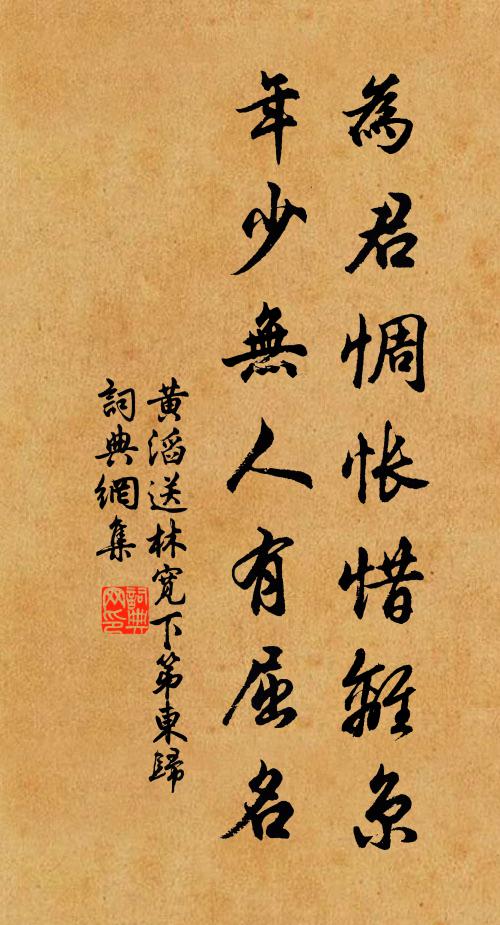 為君惆悵惜離京
年少無人有屈名
黃滔送林寬下第東歸
詞典網集
詞典
网印